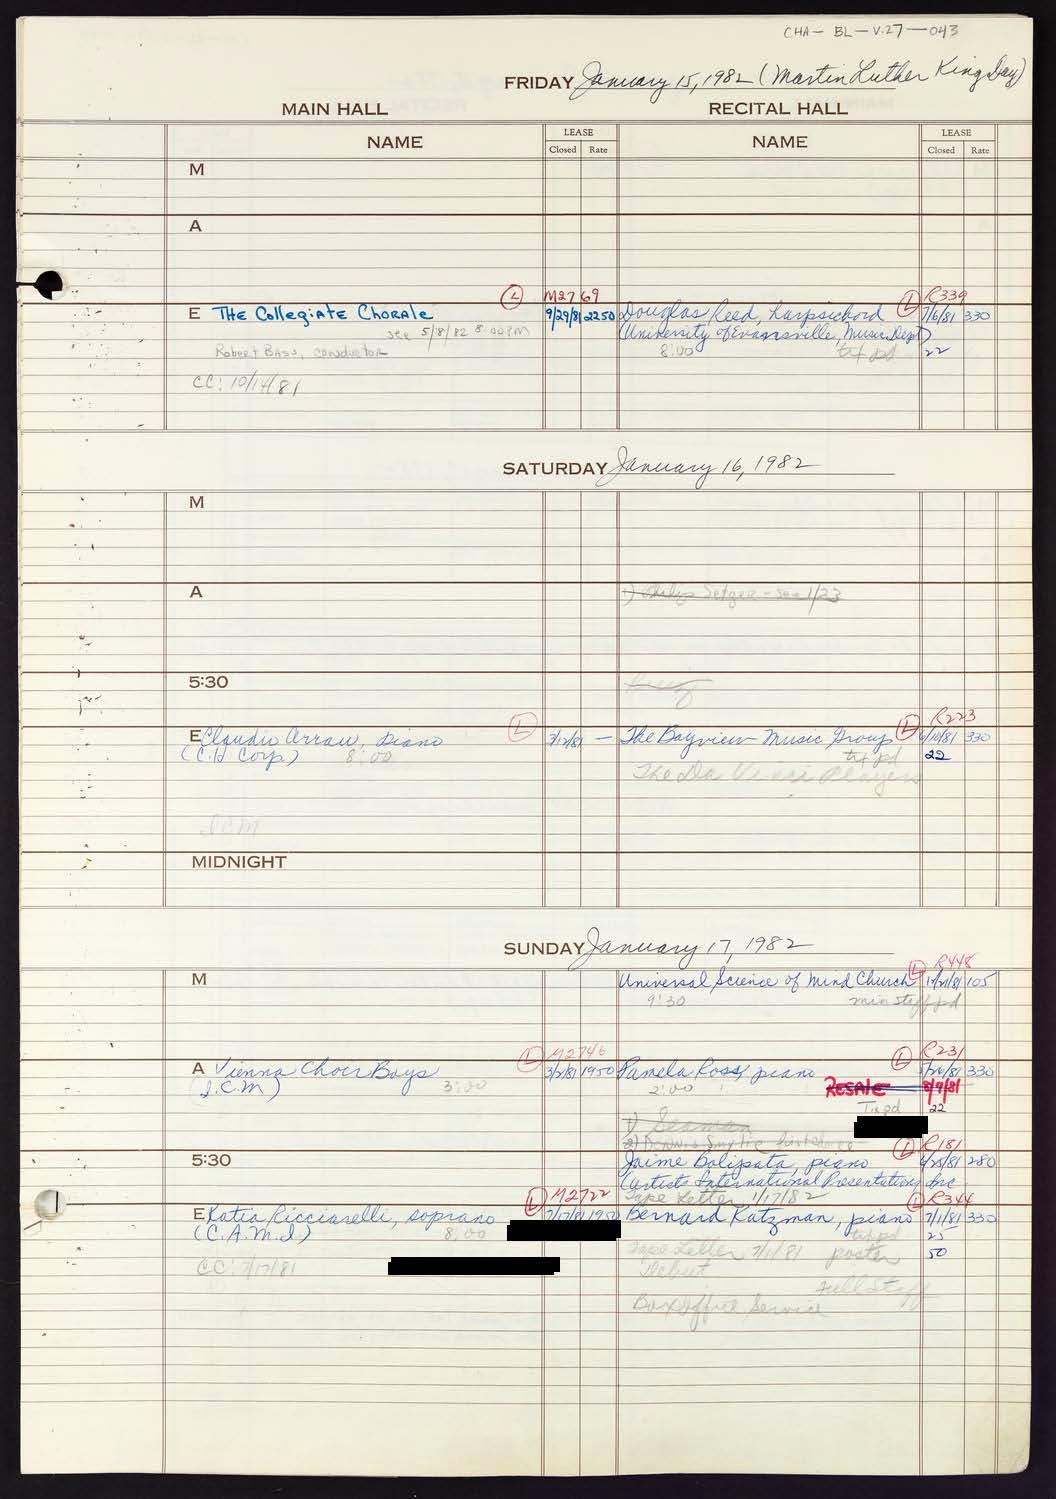 CHA- BL- V.27-043
FRIDAY January 15, 1982 (Martin Luther King Day)
MAIN HALL RECITAL HALL
NAME LEASE NAME LEASE
Closed Rate Closed Rate
M
A
L M2769 L R339
E The Collegiate Chorale 9/29/81 2250 Douglas Reed, harpsichord 7/6/81 330
see 5/8/82 8:00PM (University of Evansville, Music Dept)
Robert Bass, conductor 8:00 txt pd 22
CC: 10/14/81
SATURDAY January 16, 1982
M
A 1) Philip Setzer - see 1/23
5:30
L L R223
E Claudio Arrau, piano 3/12/81 — The Bayview Music Group 6/10/81 330
(C.H Corp) 8:00 txt pd 22
The Da Vinci Players
ICM
MIDNIGHT
SUNDAY January 17, 1982
L R448
M Universal Science of Mind Church 105
9:30 min staff pd
L M2746 L R231
A Vienna Choir Boys 3/2/81 1950 Pamela Ross, piano 330
(I.C.M) 3:00 2:00 RESALE 8/9/81
Tx pd 22
1) Seaman
2) Dennis Smylie first choice
L R181
5:30 Jaime Bolipata, piano 280
(Artists International Presentation, Inc
Tape Letter 1/17/82
L M2722 L R344
E Katia Ricciarelli, soprano 7/17/81 1950 Bernard Katzman, piano 7/1/81 330
(C.A.M.I) 8:00 txt pd 25
CC: 7/17/81 Tape Letter 7/1/81 poster 50
Debut
Full Staff
Box Office Service